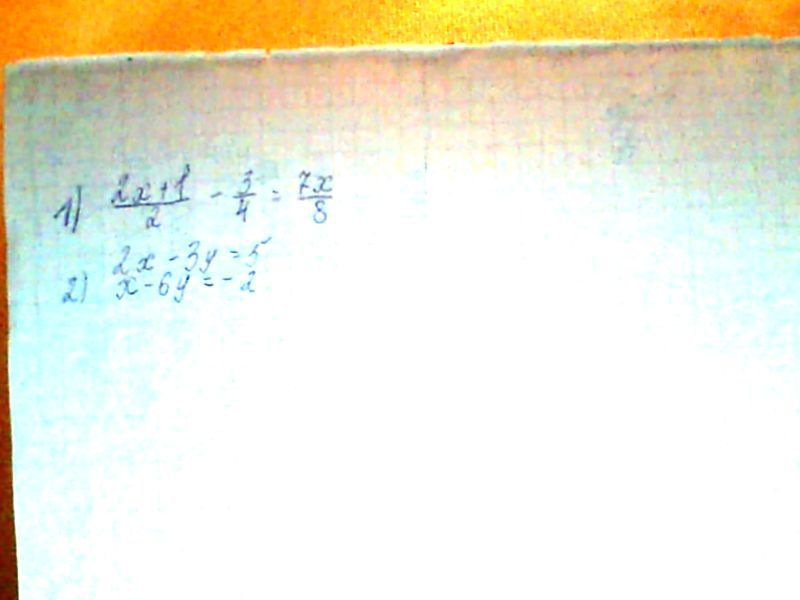 1) (2x+1)/2 - 3/4 = 7x/8
2x - 3y = 5
2) x - 6y = -2